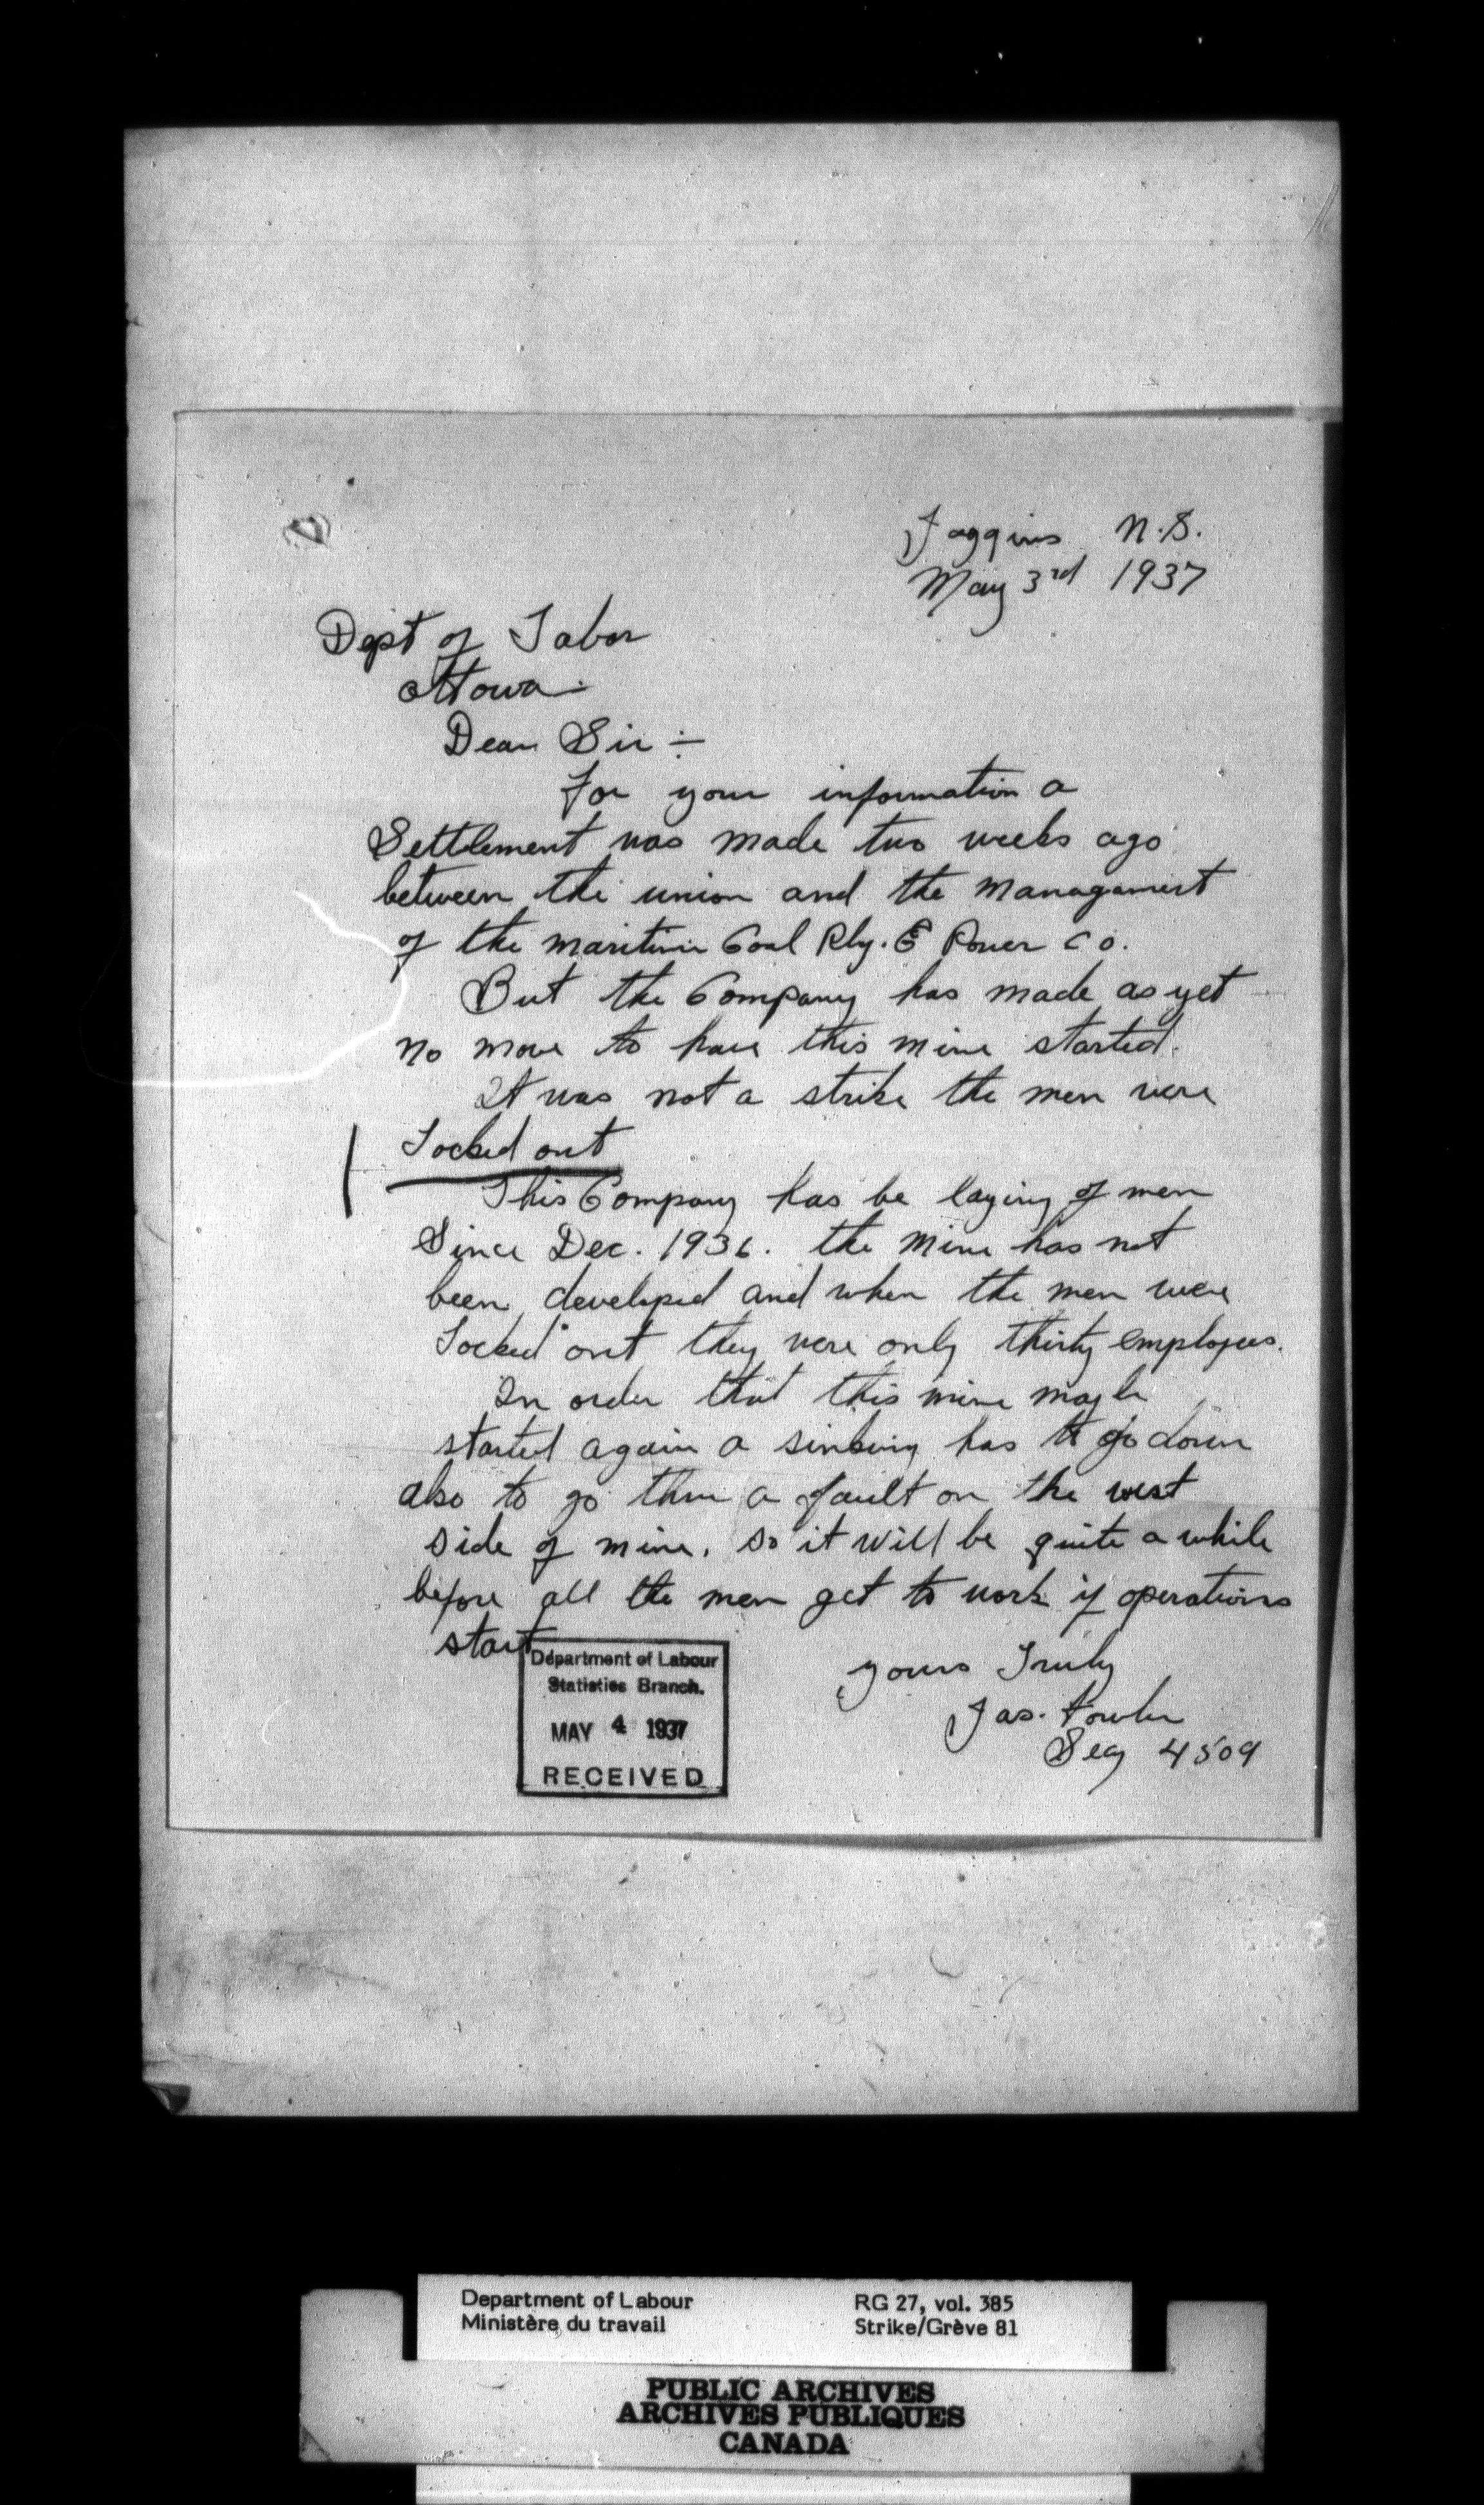 Joggins N.S.
May 3rd 1937
Dept of Labor
Ottowa.
Dear Sir :-
For your information a
Settlement was made two weeks ago
between the union and the managament
of the maritime Coal Rly. & Power Co.
But the Company has made as yet
no move to have this mine started.
It was not a strike the men were
Locked out
This Company has be laying of men
Since Dec. 1936. the mine has not
been developed and when the men were
Locked out they were only thirty employees.
In order that this mine may be
started again a sinking has to go down
also to go thru a fault on the west
side of mine. so it will be quite a while
before all the men get to work if operations
start
yours Truly
Jas. Fowler
Secy 4509
Department of Labour
Statistics Branch.
MAY 4 1937
RECEIVED
Department of Labour
Ministère du travail
RG 27, vol. 385
Strike/Grève 81
PUBLIC ARCHIVES
ARCHIVES PUBLIQUES
CANADA